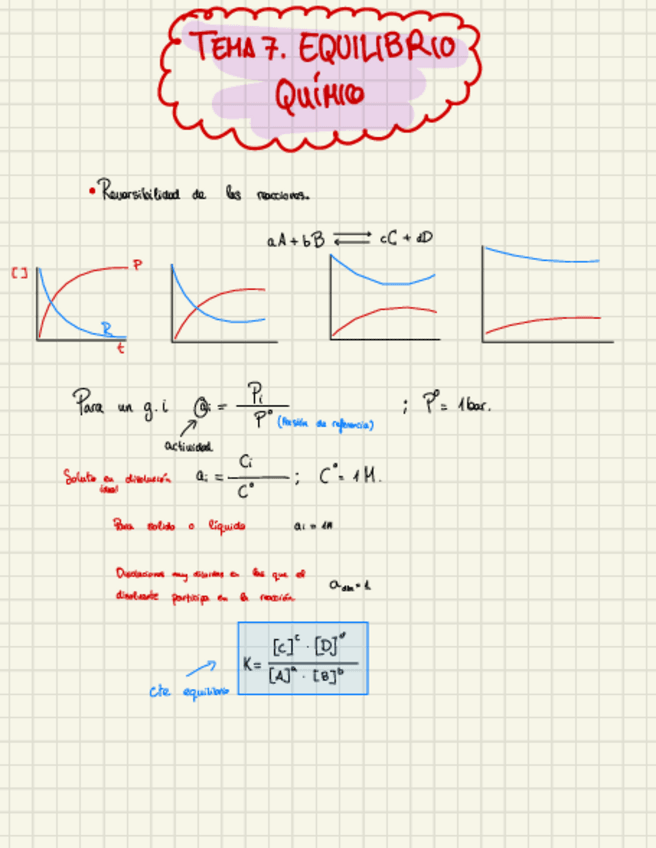 TEMA 7. EQUILIBRIO
QUÍMICO
• Reversibilidad de las reacciones.
aA + bB ⇌ cC + dD
[ ] P
R
t
Para un g.i ai = Pi / P° (Presión de referencia) ; P° = 1bar.
actividad
Soluto en disolución ideal ai = Ci / C° ; C° = 1M.
Para solido o líquido ai = 1M
Disoluciones muy diluidas en las que el
disolvente participa en la reacción a = 1
K = [C]^c · [D]^d / [A]^a · [B]^b
cte equilibrio